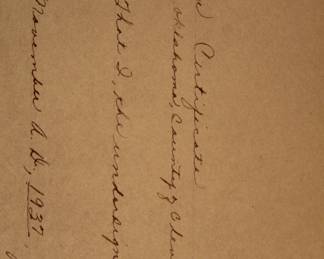 Certificate
Oklahoma, County of Clev
That I, the undersign
November A. D., 1937.